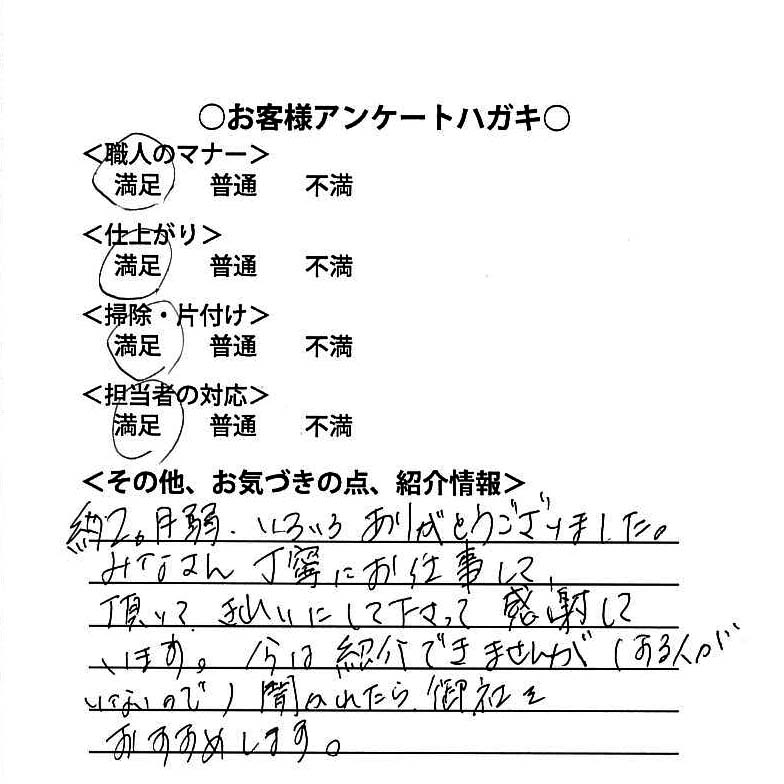 ○お客様アンケートハガキ○
＜職人のマナー＞
満足 普通 不満
＜仕上がり＞
満足 普通 不満
＜掃除・片付け＞
満足 普通 不満
＜担当者の対応＞
満足 普通 不満
＜その他、お気づきの点、紹介情報＞
約2ヶ月弱、いろいろありがとうございました。
みなさん丁寧にお仕事して、
頂いて、きれいにして下さって感謝して
います。今は紹介できませんが(する人が
いないので)聞かれたら、御社を
おすすめします。